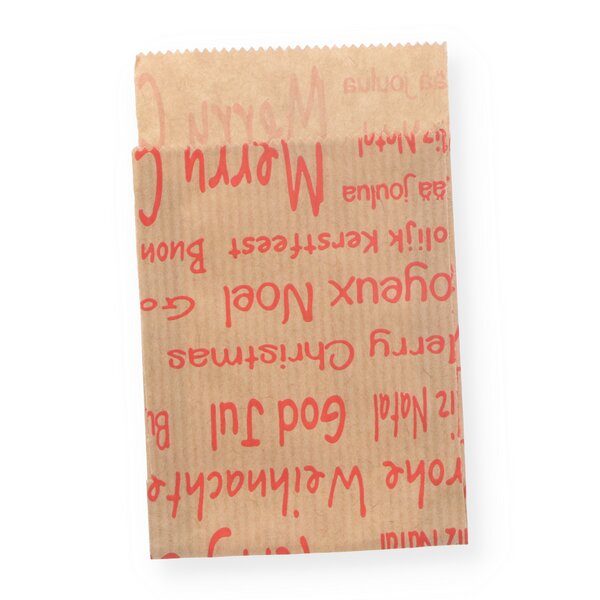 iz Natal
rohe Weihnachte
iz Natal God Jul Bu
erry Christmas
oyeux Noel Go
olijk Kerstfeest Buon
ää joulua Merry C
iz Natal
ää joulua Merry C